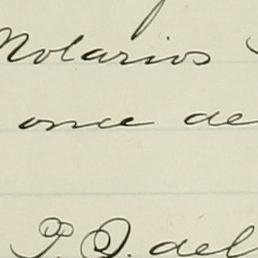 Notarios
once de
P. O. del